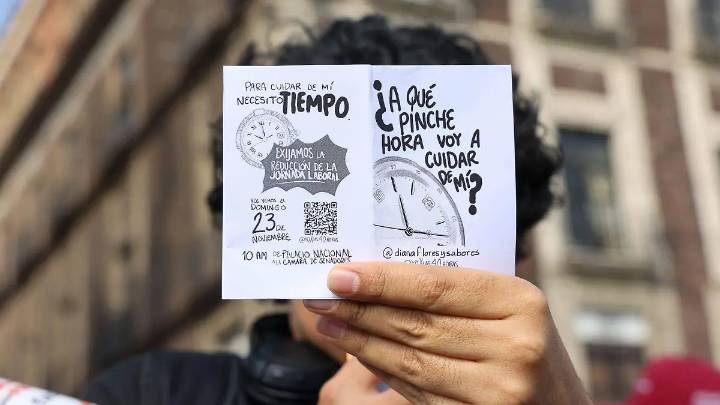 PARA CUIDAR DE MÍ
NECESITO TIEMPO
EXIJAMOS LA
REDUCCIÓN DE LA
JORNADA LABORAL
NOS VEMOS EL
DOMINGO
23 DE
NOVIEMBRE
10 AM DE PALACIO NACIONAL
A LA CÁMARA DE SENADORES
¿A QUÉ
PINCHE
HORA VOY A
CUIDAR
DE MÍ?
@dianafloresysabores